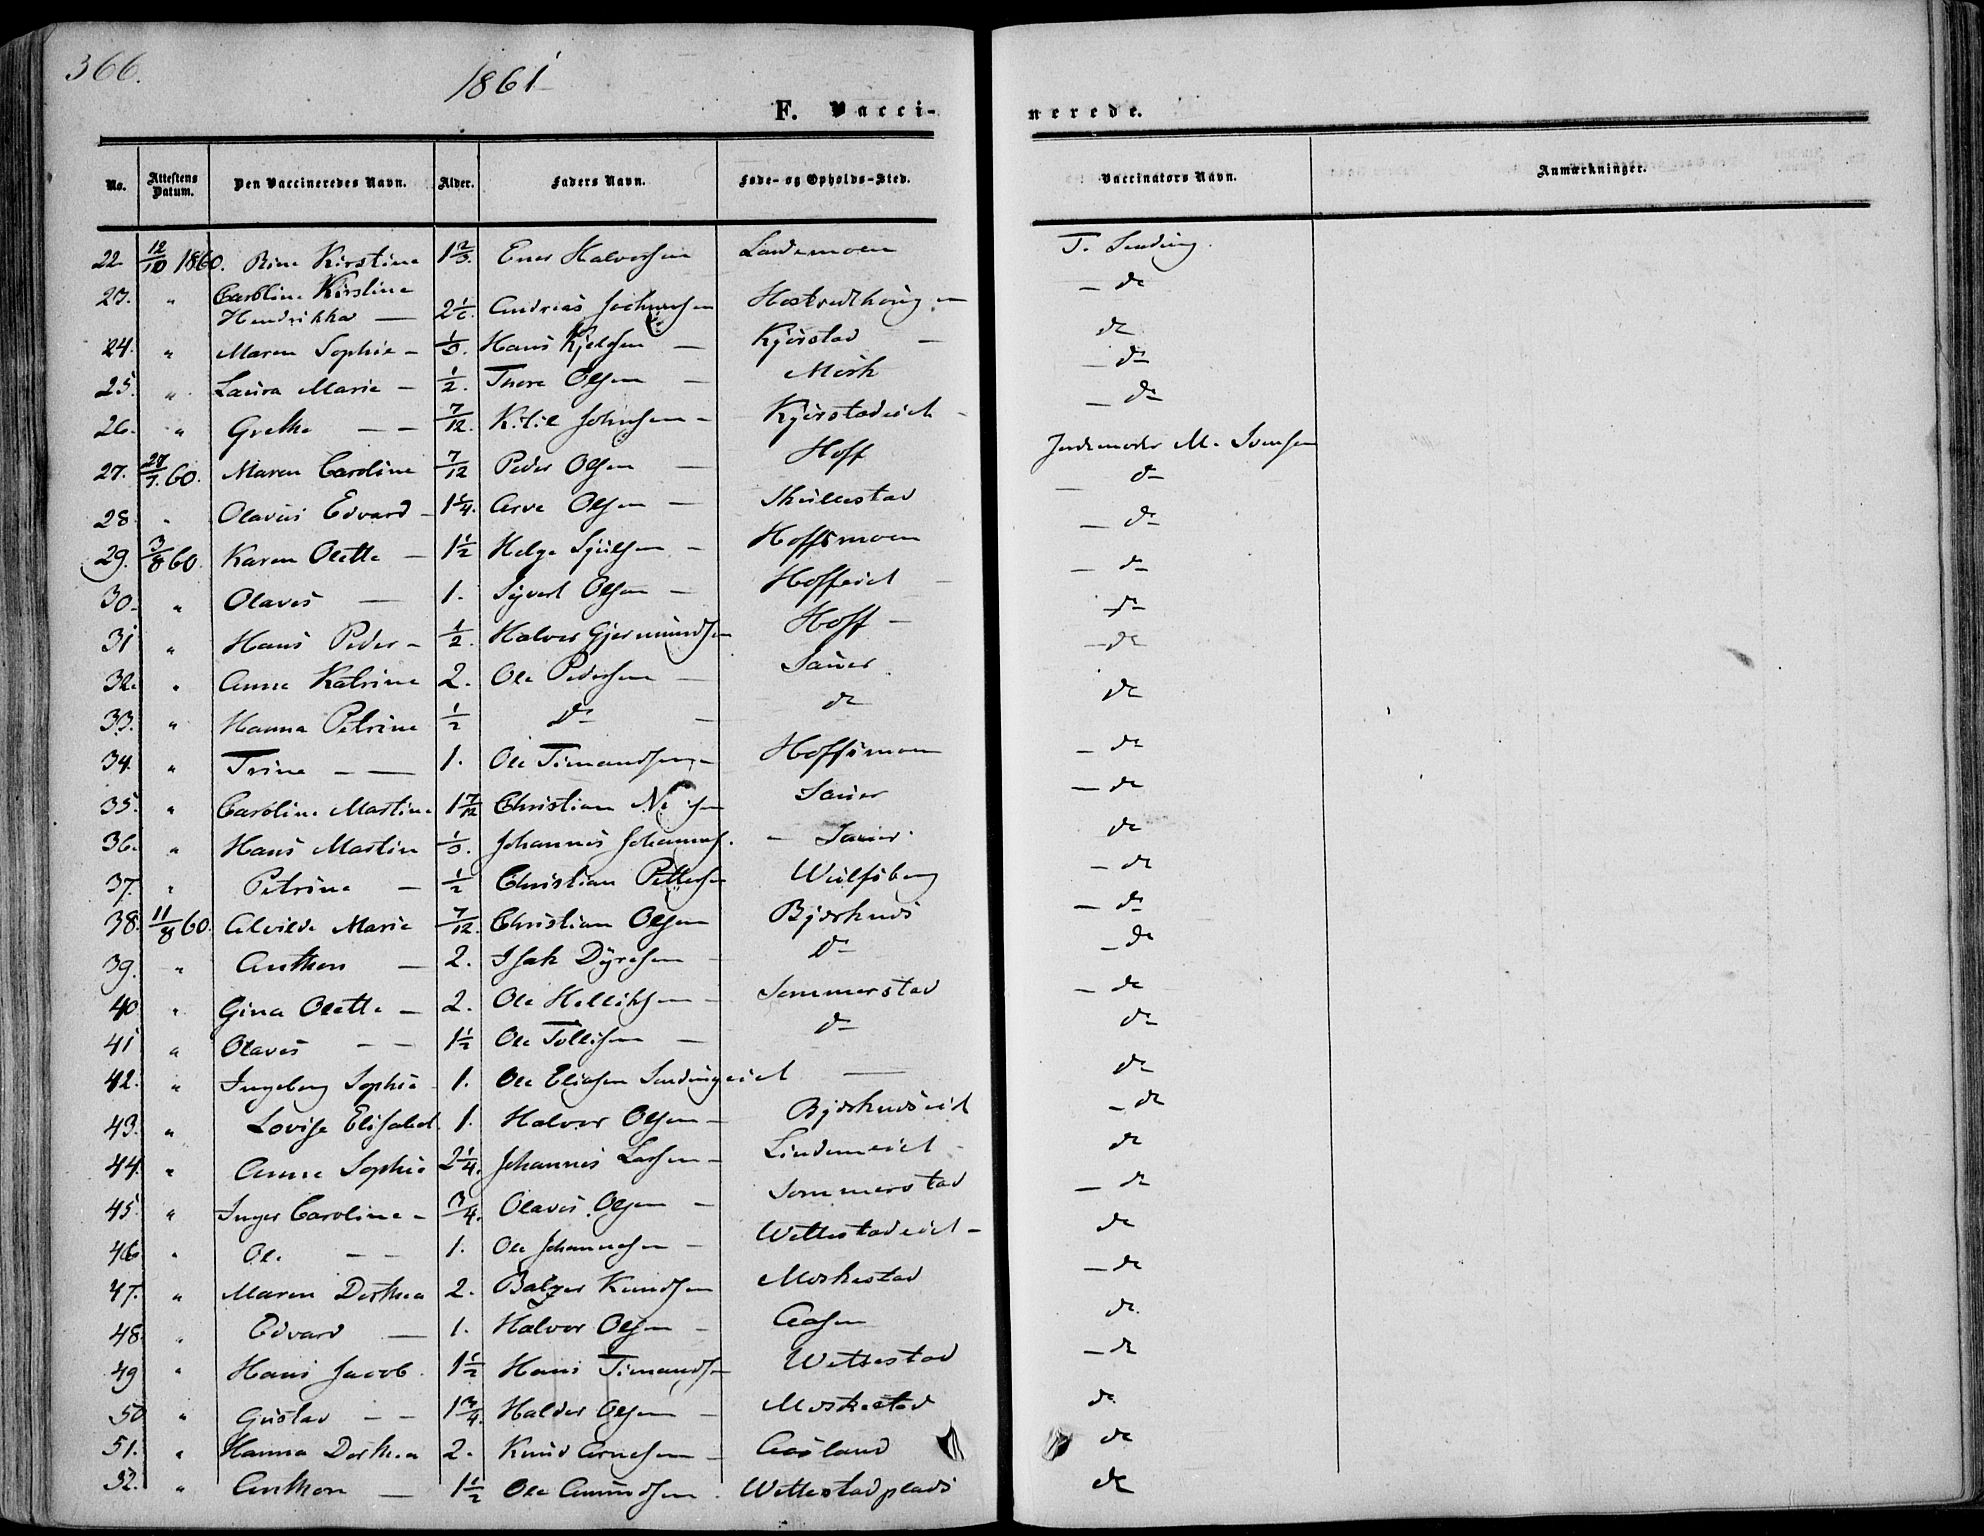 366.
1861
F. Vaccinerede.
No. Attestens Datum. Den Vaccineredes Navn. Alder. Faders Navn. Føde- og Opholds-Sted. Vaccinators Navn. Anmærkninger.
22. 12/10 1860. Kirstine 1 2/3. Halvorsen Landemoen T.
23. " Caroline Kirstine
Hendrikka — 2 1/6. Andreas — do
24. " Maren Sophie — 1/3. Hans Kjeldsen — Kjørstad — do
25. " Laura Marie — 1/2. Thore Olsen — Mørk — do
26. " Grethe — — 7/12. Kitil Johnsen — Kjørstadeiet — — do
27. 27/7 60. Maren Caroline 7/12 Peder Olsen — Hoff Jordemoder M. Svensen
28. " Olavus Edvard — 1 1/4. Arve Olsen — Skullestad — do
29. 3/8 60. Karen Olette — 1 1/2 Helge — Hoffsmoen — do
30. " Olaves — 1. Syvert Olsen — Hoffeiet — — do
31 " Hans Peder — 1/2. Halvor Gjermundsen Hoff — do
32. " Anne Katrine 2. Ole Pedersen — Sauer — do
33. " Hanna Petrine 1/2 Do — do do
34. " Trine — — 1. Ole Timandsen — Hoffsmoen — do
35. " Caroline Martine 1 7/12 Christian Sauer — do
36. " Hans Martin 1/3. Johannes Johannes. — Sauer. do
37. " Petrine — 1/2 Christian Pettersen Wulfsberg — do
38. 11/8 60. Alvilde Marie 7/12. Christian Olsen Bjørknes — do
39. " Anthon — 2. Isak Dyresen — Do — do
40 " Gina Olette — 2. Ole Helliksen — Sommerstad — do
41 " Olaves — — 1 1/2 Ole Tollefsen — Do do
42. " Ingeborg Sophie 1. Ole Eliasen — do
43. " Lovise Elisabet. 1. Halvor Olsen — — do
44. " Anne Sophie 2 1/4. Johannes Larsen — Lindemeiet — do
45. " Inger Caroline — 3/4. Olaves Olsen — Sommerstad — do
46. " Ole — — 1. Ole Johannesen — Wettestadeiet — do
47. " Maren Dorthea 2. Balzer Knudsen Moskestad — do
48. " Edvard — 1. Halvor Olsen — Aasen do.
49 " Hans Jacob. 1 1/2 Hans Timandsen Wettestad — do
50 " Gustav — — 1 3/4. Halvor Olsen — Moskestad do
51. " Hanna Dorthea 2. Knud Arnesen — Aasland do
52. " Anthon — 1 1/2 Ole Amundsen. Wettestadplads do